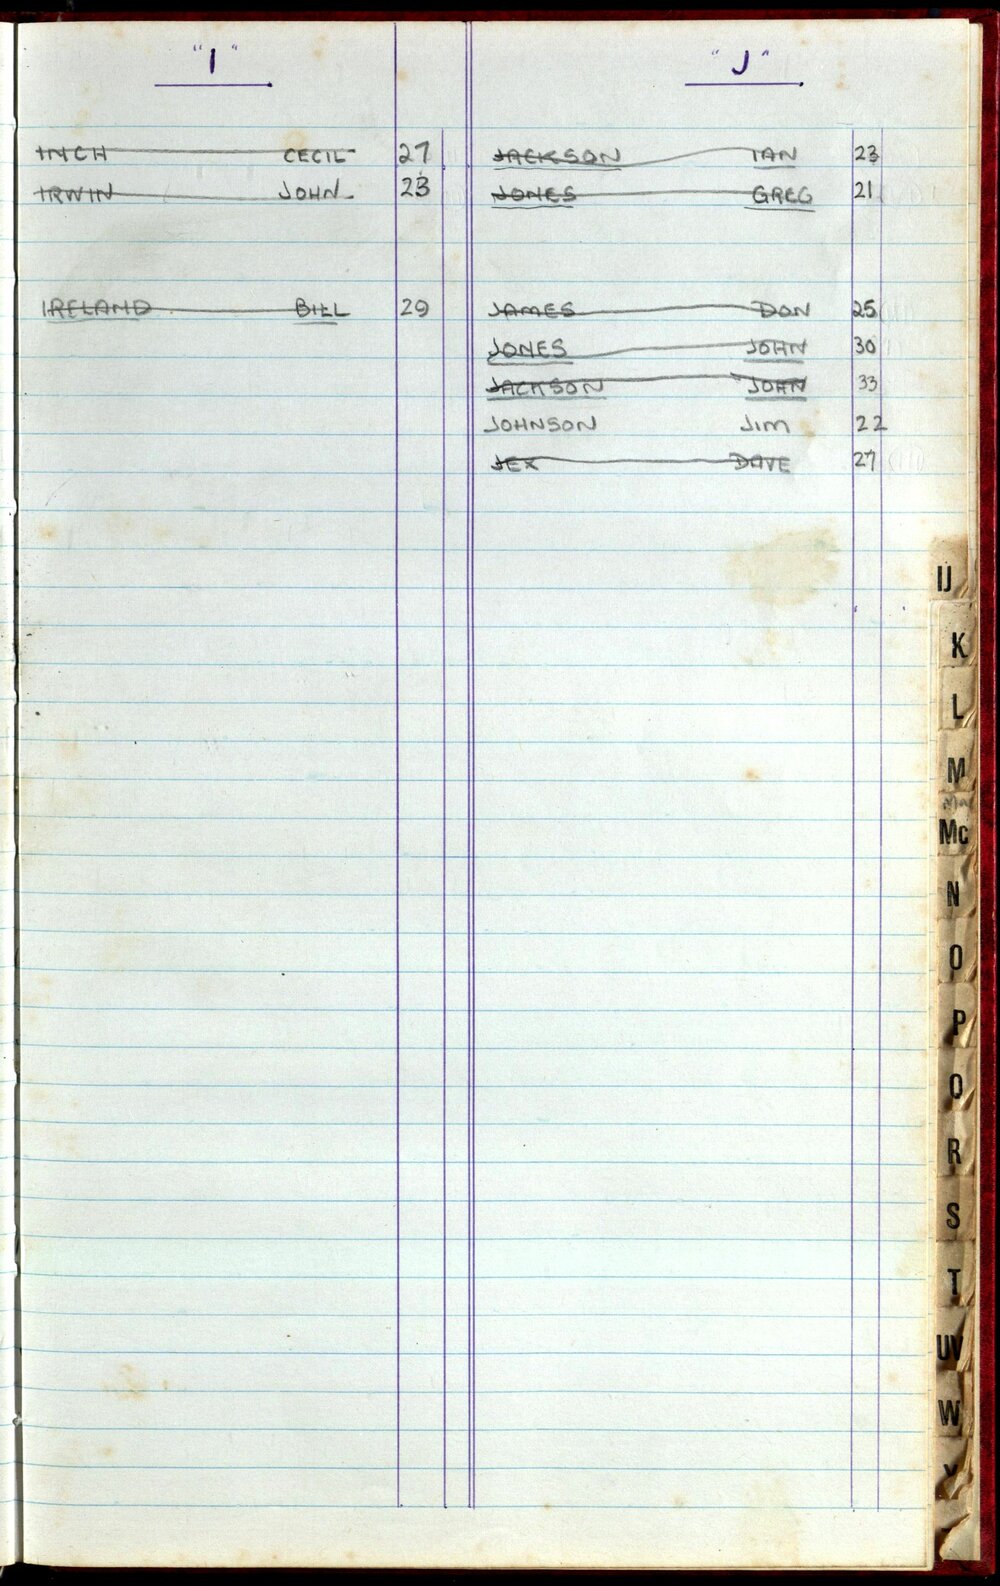 "I"
INCH CECIL 27
IRWIN JOHN 23
IRELAND BILL 29
"J"
JACKSON IAN 23
JONES GREG 21
JAMES DON 25
JONES JOHN 30
JACKSON JOHN 33
JOHNSON JIM 22
JEX DAVE 27
IJ
K
L
M
Mac
Mc
N
O
P
Q
R
S
T
UV
W